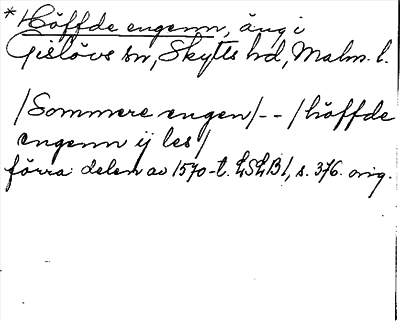 * Höffde engenn, äng i
Gislövs sn, Skytts hd, Malm. l.
/Sommere engen/ - - /höffde
engenn ij les/
förra delen av 1570-t. LSLB 1, s. 376. orig.